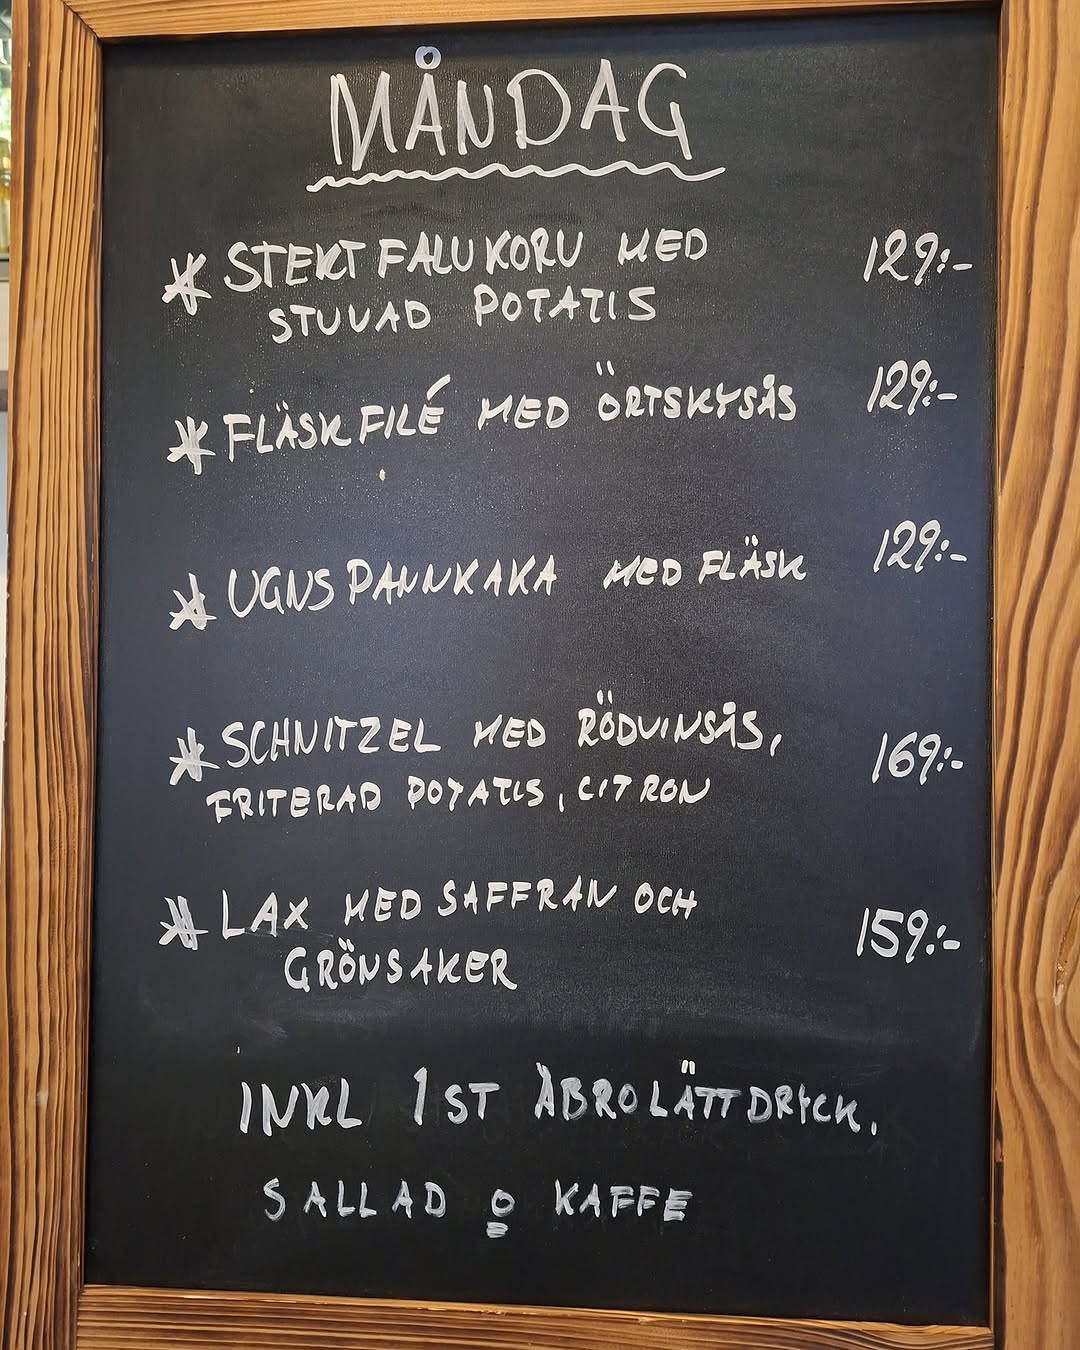 MÅNDAG
* STEKT FALUKORV MED 129:-
STUVAD POTATIS
* FLÄSKFILÉ MED ÖRTSKYSÅS 129:-
* UGNSPANNKAKA MED FLÄSK 129:-
* SCHNITZEL MED RÖDVINSÅS, 169:-
FRITERAD POTATIS, CITRON
* LAX MED SAFFRAN OCH 159:-
GRÖNSAKER
INKL 1ST ÅBRO LÄTTDRYCK,
SALLAD o KAFFE